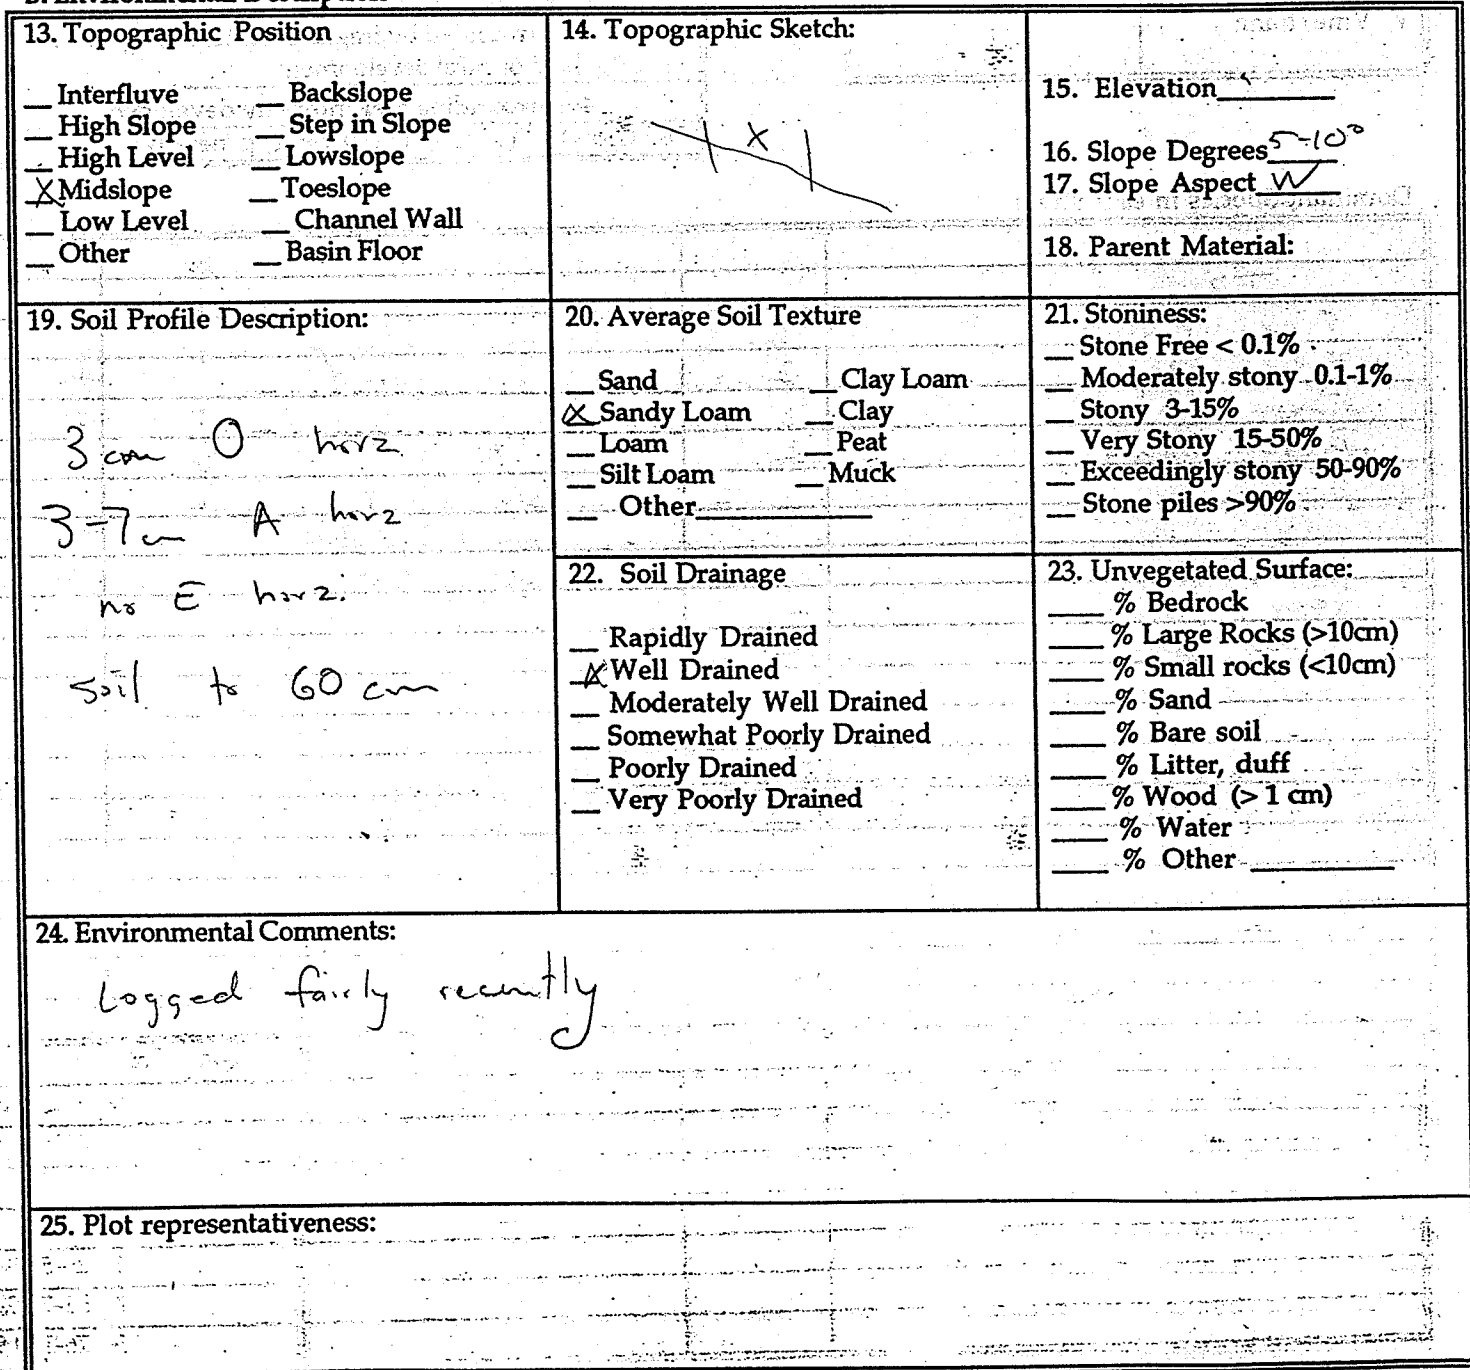 13. Topographic Position
__ Interfluve __ Backslope
__ High Slope __ Step in Slope
__ High Level __ Lowslope
X Midslope __ Toeslope
__ Low Level __ Channel Wall
__ Other __ Basin Floor
14. Topographic Sketch:
X
15. Elevation______
16. Slope Degrees 5-10°
17. Slope Aspect W
18. Parent Material:
19. Soil Profile Description:
3 cm O horz.
3-7 cm A horz
no E horz.
soil to 60 cm
20. Average Soil Texture
__ Sand __ Clay Loam
X Sandy Loam __ Clay
__ Loam __ Peat
__ Silt Loam __ Muck
__ Other__________
21. Stoniness:
__ Stone Free < 0.1%
__ Moderately stony 0.1-1%
__ Stony 3-15%
__ Very Stony 15-50%
__ Exceedingly stony 50-90%
__ Stone piles >90%
22. Soil Drainage
__ Rapidly Drained
X Well Drained
__ Moderately Well Drained
__ Somewhat Poorly Drained
__ Poorly Drained
__ Very Poorly Drained
23. Unvegetated Surface:
____ % Bedrock
____ % Large Rocks (>10cm)
____ % Small rocks (<10cm)
____ % Sand
____ % Bare soil
____ % Litter, duff
____ % Wood (> 1 cm)
____ % Water
____ % Other __________
24. Environmental Comments:
Logged fairly recently
25. Plot representativeness: